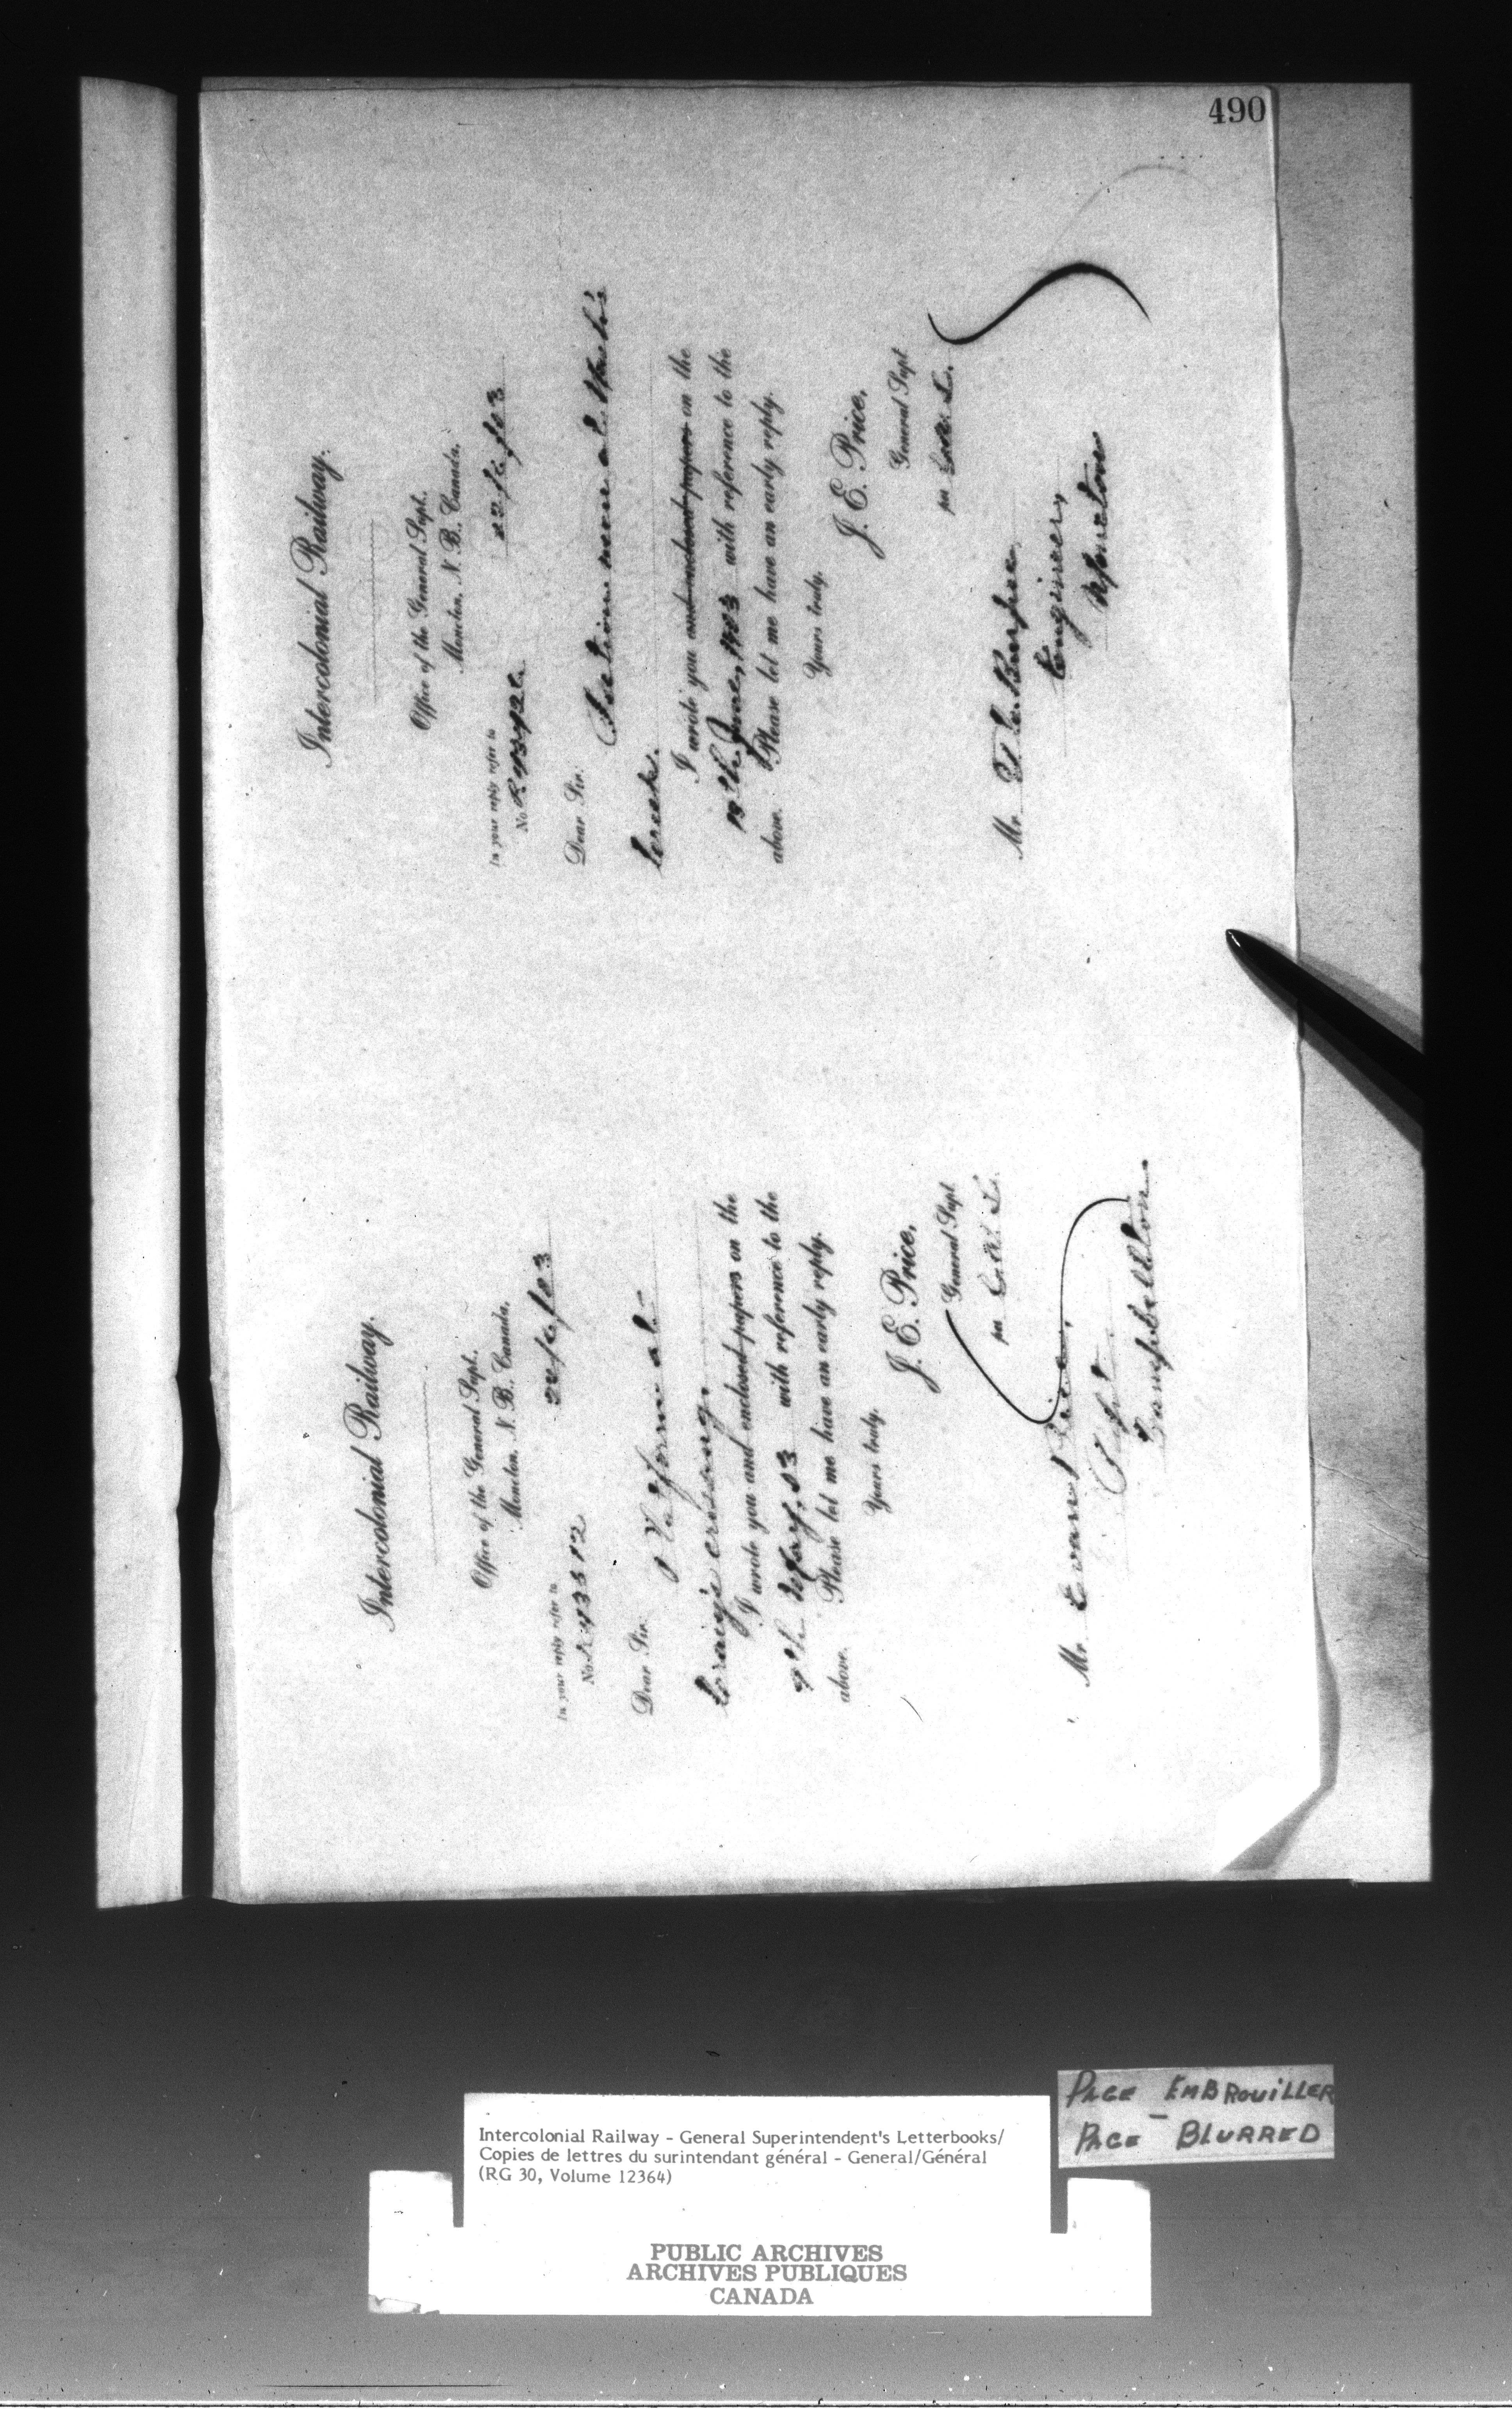 490
Intercolonial Railway.
Office of the General Supt.
Moncton, N. B., Canada,
22/6/03
In your reply refer to
No.
Dear Sir:
Creek.
I wrote you and enclosed papers on the
18th June, 1903 with reference to the
above. Please let me have an early reply.
Yours truly,
J. E. Price,
General Supt
per
Mr. T. C. Burpee,
Engineer,
Moncton
Intercolonial Railway.
Office of the General Supt.
Moncton, N. B., Canada,
22/6/03
In your reply refer to
No.
Dear Sir:
Platform at
Craig's crossing.
I wrote you and enclosed papers on the
9th May, 03 with reference to the
above. Please let me have an early reply.
Yours truly,
J. E. Price,
General Supt
per
Mr. Evan Price,
Supt.
Campbellton.
PAGE EMBROUILLER
PAGE - BLURRED
Intercolonial Railway - General Superintendent's Letterbooks/
Copies de lettres du surintendant général - General/Général
(RG 30, Volume 12364)
PUBLIC ARCHIVES
ARCHIVES PUBLIQUES
CANADA